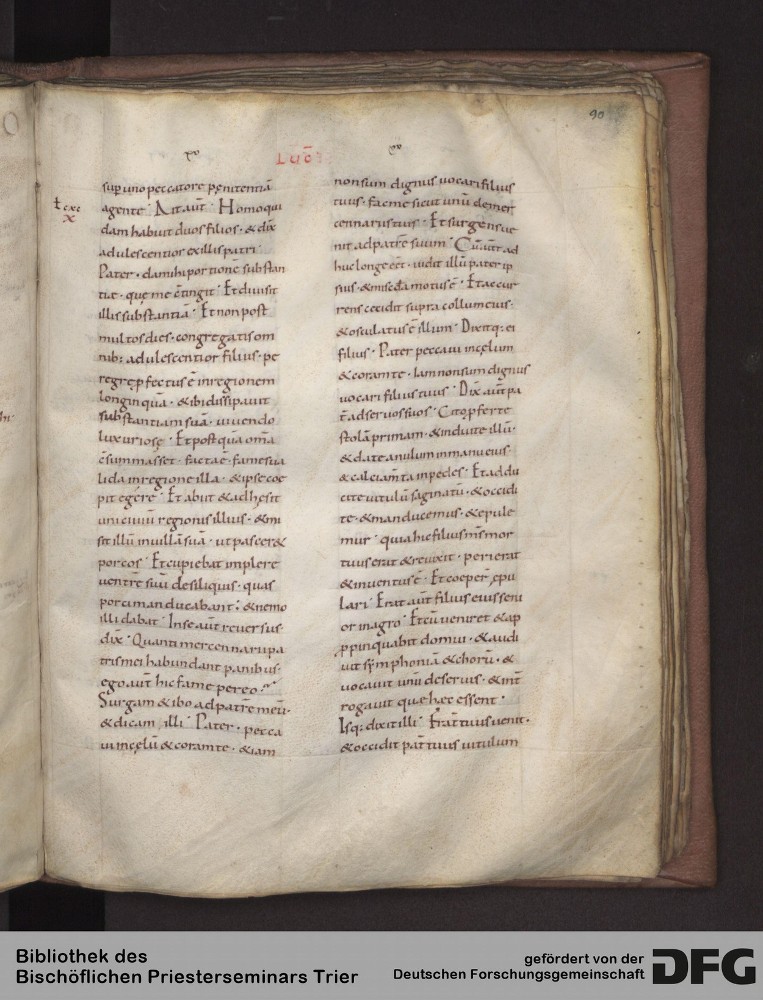 90
LUC̄
sup uno peccatore penitentiā
agente · Ait aūt · Homo qui
dam habuit duos filios · & dix̄
adulescentior ex illis patri ·
Pater · da mihi portionē substan
tiae · quę me c̄tingit · Et diuisit
illis substantiā · Et non post
multos dies · congregatis om
nib: adulescentior filius · pe
regrę pfectus ē in regionem
longinquā · & ibi dissipauit
substantiam suā · uiuendo
luxuriosę · Et postquā om̄a
c̄summasset · facta ē fames ua
lida in regione illa · & ipse coe
pit egere · Et abiit & adhęsit
uni ciuiū regionis illius · & mi
sit illū in uillā suā · ut pascer&
porcos · Et cupiebat implere
uentrē suū de siliquis · quas
porci manducabant · & nemo
illi dabat · In se aūt reuersus ·
dix̄ · Quanti mercennarii pa
tris mei habundant panibus ·
ego aūt hic fame pereo
Surgam & ibo ad patrē meū ·
& dicam illi · Pater · pecca
ui in cęlū & coram te · & iam
non sum dignus uocari filius
tuus · fac me sicut unū de mer
cennariis tuis · Et surgens ue
nit ad patrē suum · Cū aūt ad
huc longe ēēt · uidit illū pater ip
sius · & mis̄cdia motus ē · Et accur
rens cecidit supra collum eius ·
& osculatus ē illum · Dixitq: ei
filius · Pater peccaui in cęlum
& coram te · Iam non sum dignus
uocari filius tuus · Dix̄ aūt pa
t̄ ad seruos suos · Cito pferte
stolā primam · & induite illū ·
& date anulum in manu eius ·
& calciam̄ta in pedes · Et addu
cite uitulū saginatū · & occidi
te · & manducemus · & epule
mur · quia hic filius m̄s mor
tuus erat & reuixit · perierat
& inuentus ē · Et coeper̄ epu
lari · Erat aūt filius eius seni
or in agro · Et cū ueniret & ap
ppinquabit domui · & audi
uit sȳmphoniā & chorū · &
uocauit unū de seruis · & int̄
rogauit quę hęc essent ·
Isq: dixit illi · Frāt tuus uenit ·
& occidit pat̄ tuus uitulum
Bibliothek des
Bischöflichen Priesterseminars Trier
gefördert von der
Deutschen Forschungsgemeinschaft
DFG